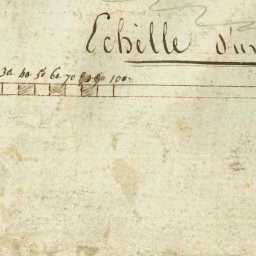 Echille d'un
30 40 50 60 70 80 90 100